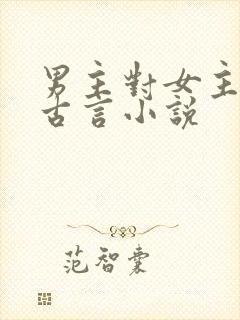 男主對女主
古言小說
范智囊